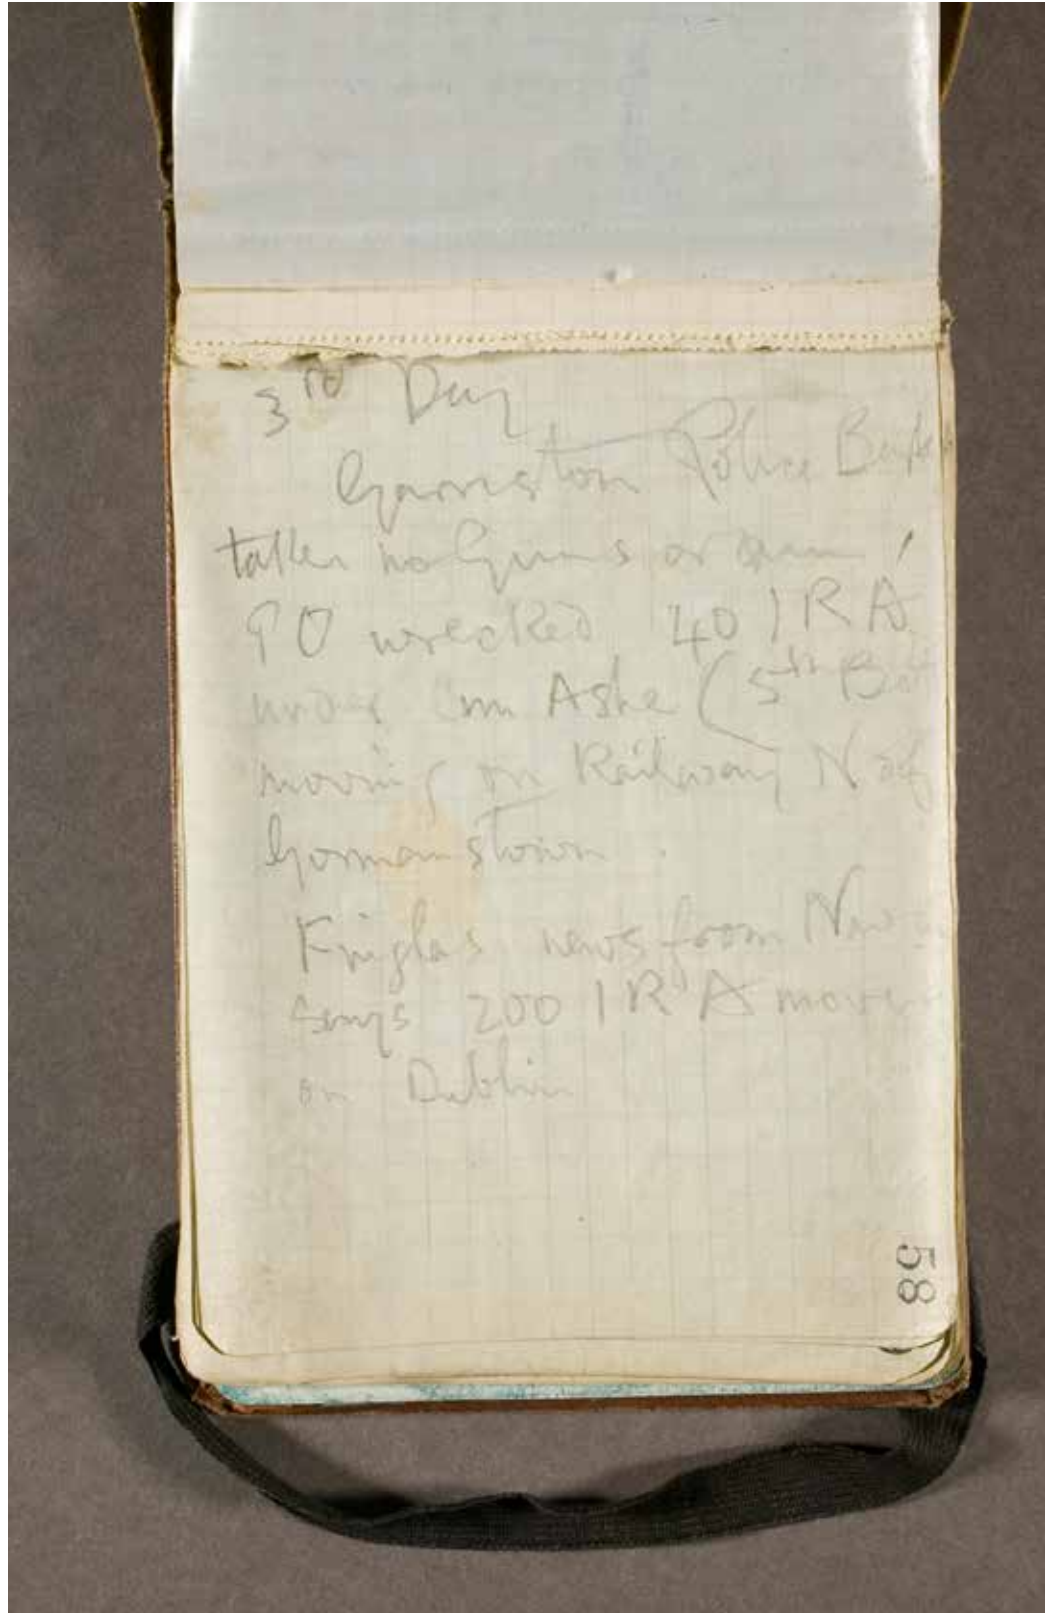 3rd Day
Garristown Police Bks
taken no Guns or amm!
PO wrecked 40 IRA
under Com Ashe (5th Bat
moving on Railway N of
Gormanstown.
Finglas news from Nav
says 200 IRA move
on Dublin
58